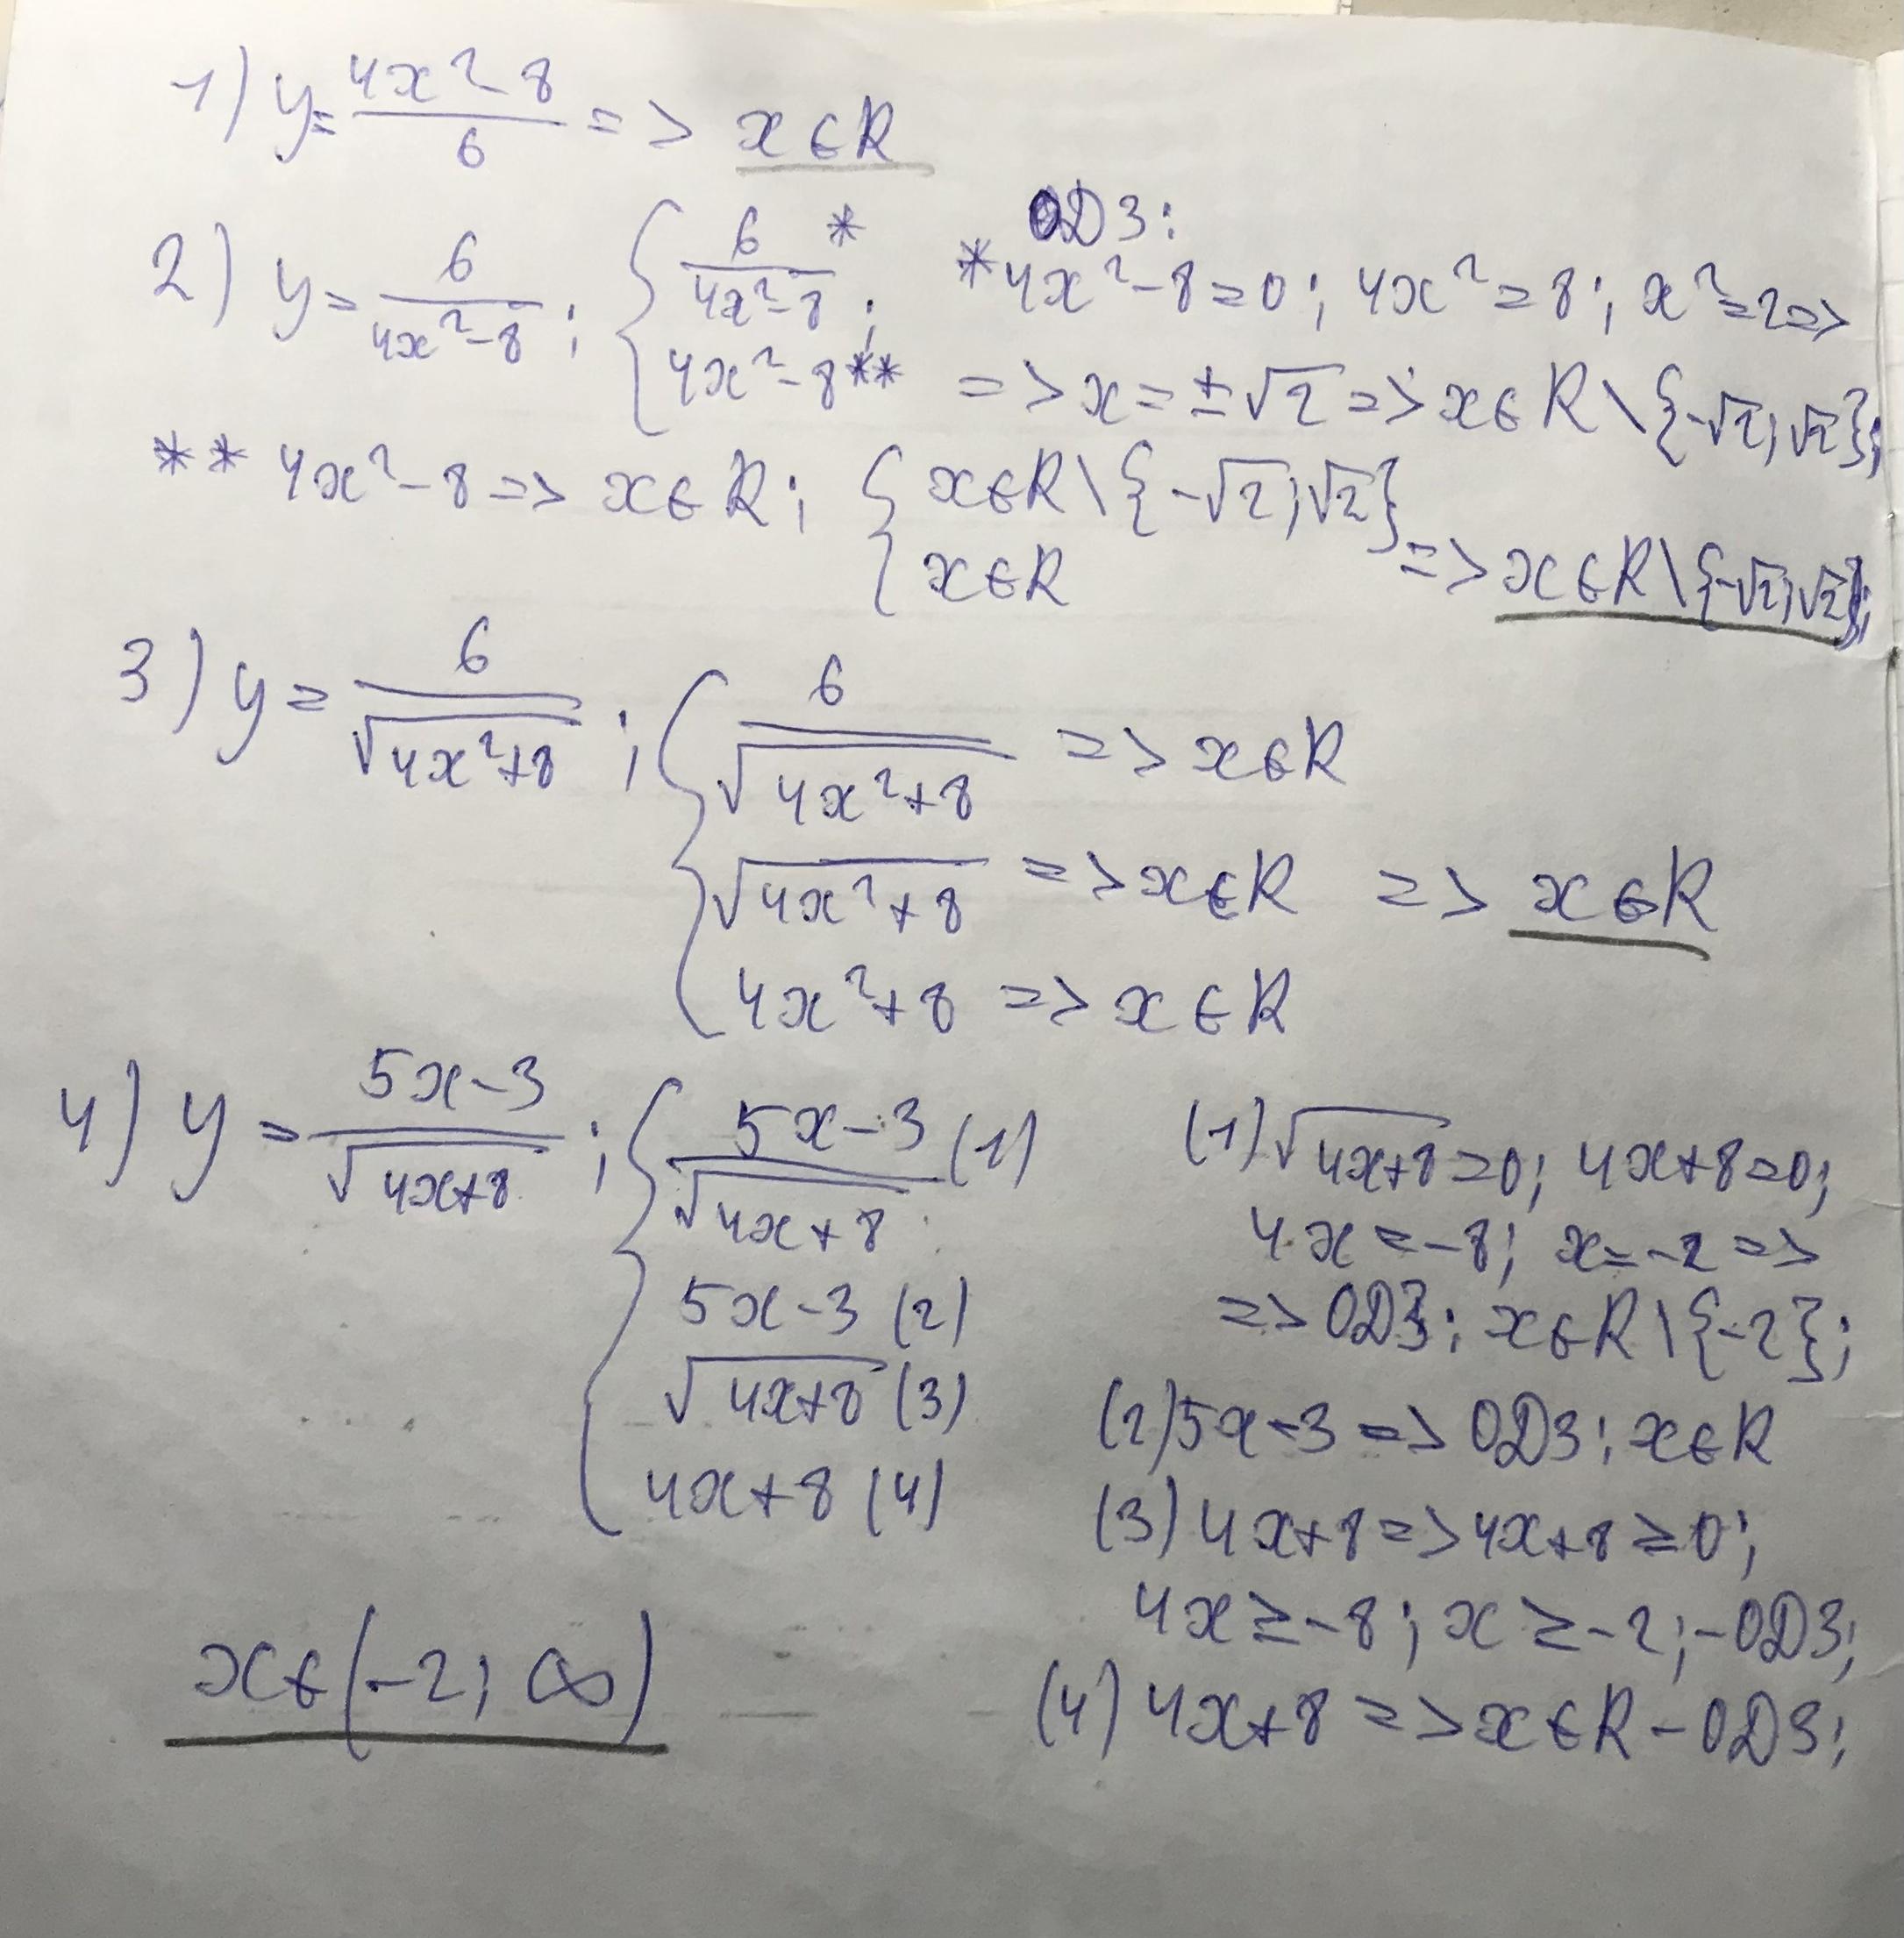 1) y = (4x² - 8)/6 => x ∈ R
2) y = 6/(4x² - 8) ; { 6/(4x² - 8) * ; 4x² - 8 **
ОДЗ:
* 4x² - 8 = 0 ; 4x² = 8 ; x² = 2 =>
=> x = ±√2 => x ∈ R \ {-√2; √2};
** 4x² - 8 => x ∈ R ; { x ∈ R \ {-√2; √2} ; x ∈ R => x ∈ R \ {-√2; √2};
3) y = 6/√(4x² + 8) ; { 6/√(4x² + 8) => x ∈ R
√(4x² + 8) => x ∈ R => x ∈ R
4x² + 8 => x ∈ R
4) y = (5x - 3)/√(4x + 8) ; { (5x - 3)/√(4x + 8) (1)
5x - 3 (2)
√(4x + 8) (3)
4x + 8 (4)
(1) √(4x + 8) = 0; 4x + 8 = 0;
4x = -8; x = -2 =>
=> ОДЗ: x ∈ R \ {-2};
(2) 5x - 3 => ОДЗ: x ∈ R
(3) 4x + 8 => 4x + 8 ≥ 0;
4x ≥ -8; x ≥ -2; - ОДЗ;
(4) 4x + 8 => x ∈ R - ОДЗ;
x ∈ (-2; ∞)